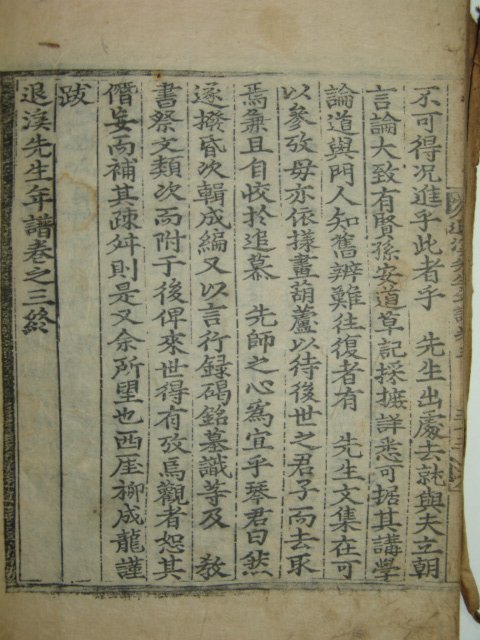 不可得况進乎此者乎 先生出處去就與夫立朝
言論大致有賢孫安道草記採摭詳悉可据其講學
論道與門人知舊辨難往復者有 先生文集在可
以參攷毋亦依㨾畫葫蘆以待後世之君子而去取
焉兼且自附於追慕 先師之心爲宜乎琴君曰然
遂撥昏次輯成編又以言行録碣銘墓識等及 敎
書祭文類次而附于後俾來世得有攷焉觀者恕其
僭妄而補其疎舛則是又余所望也西厓柳成龍謹
跋
退溪先生年譜卷之三終